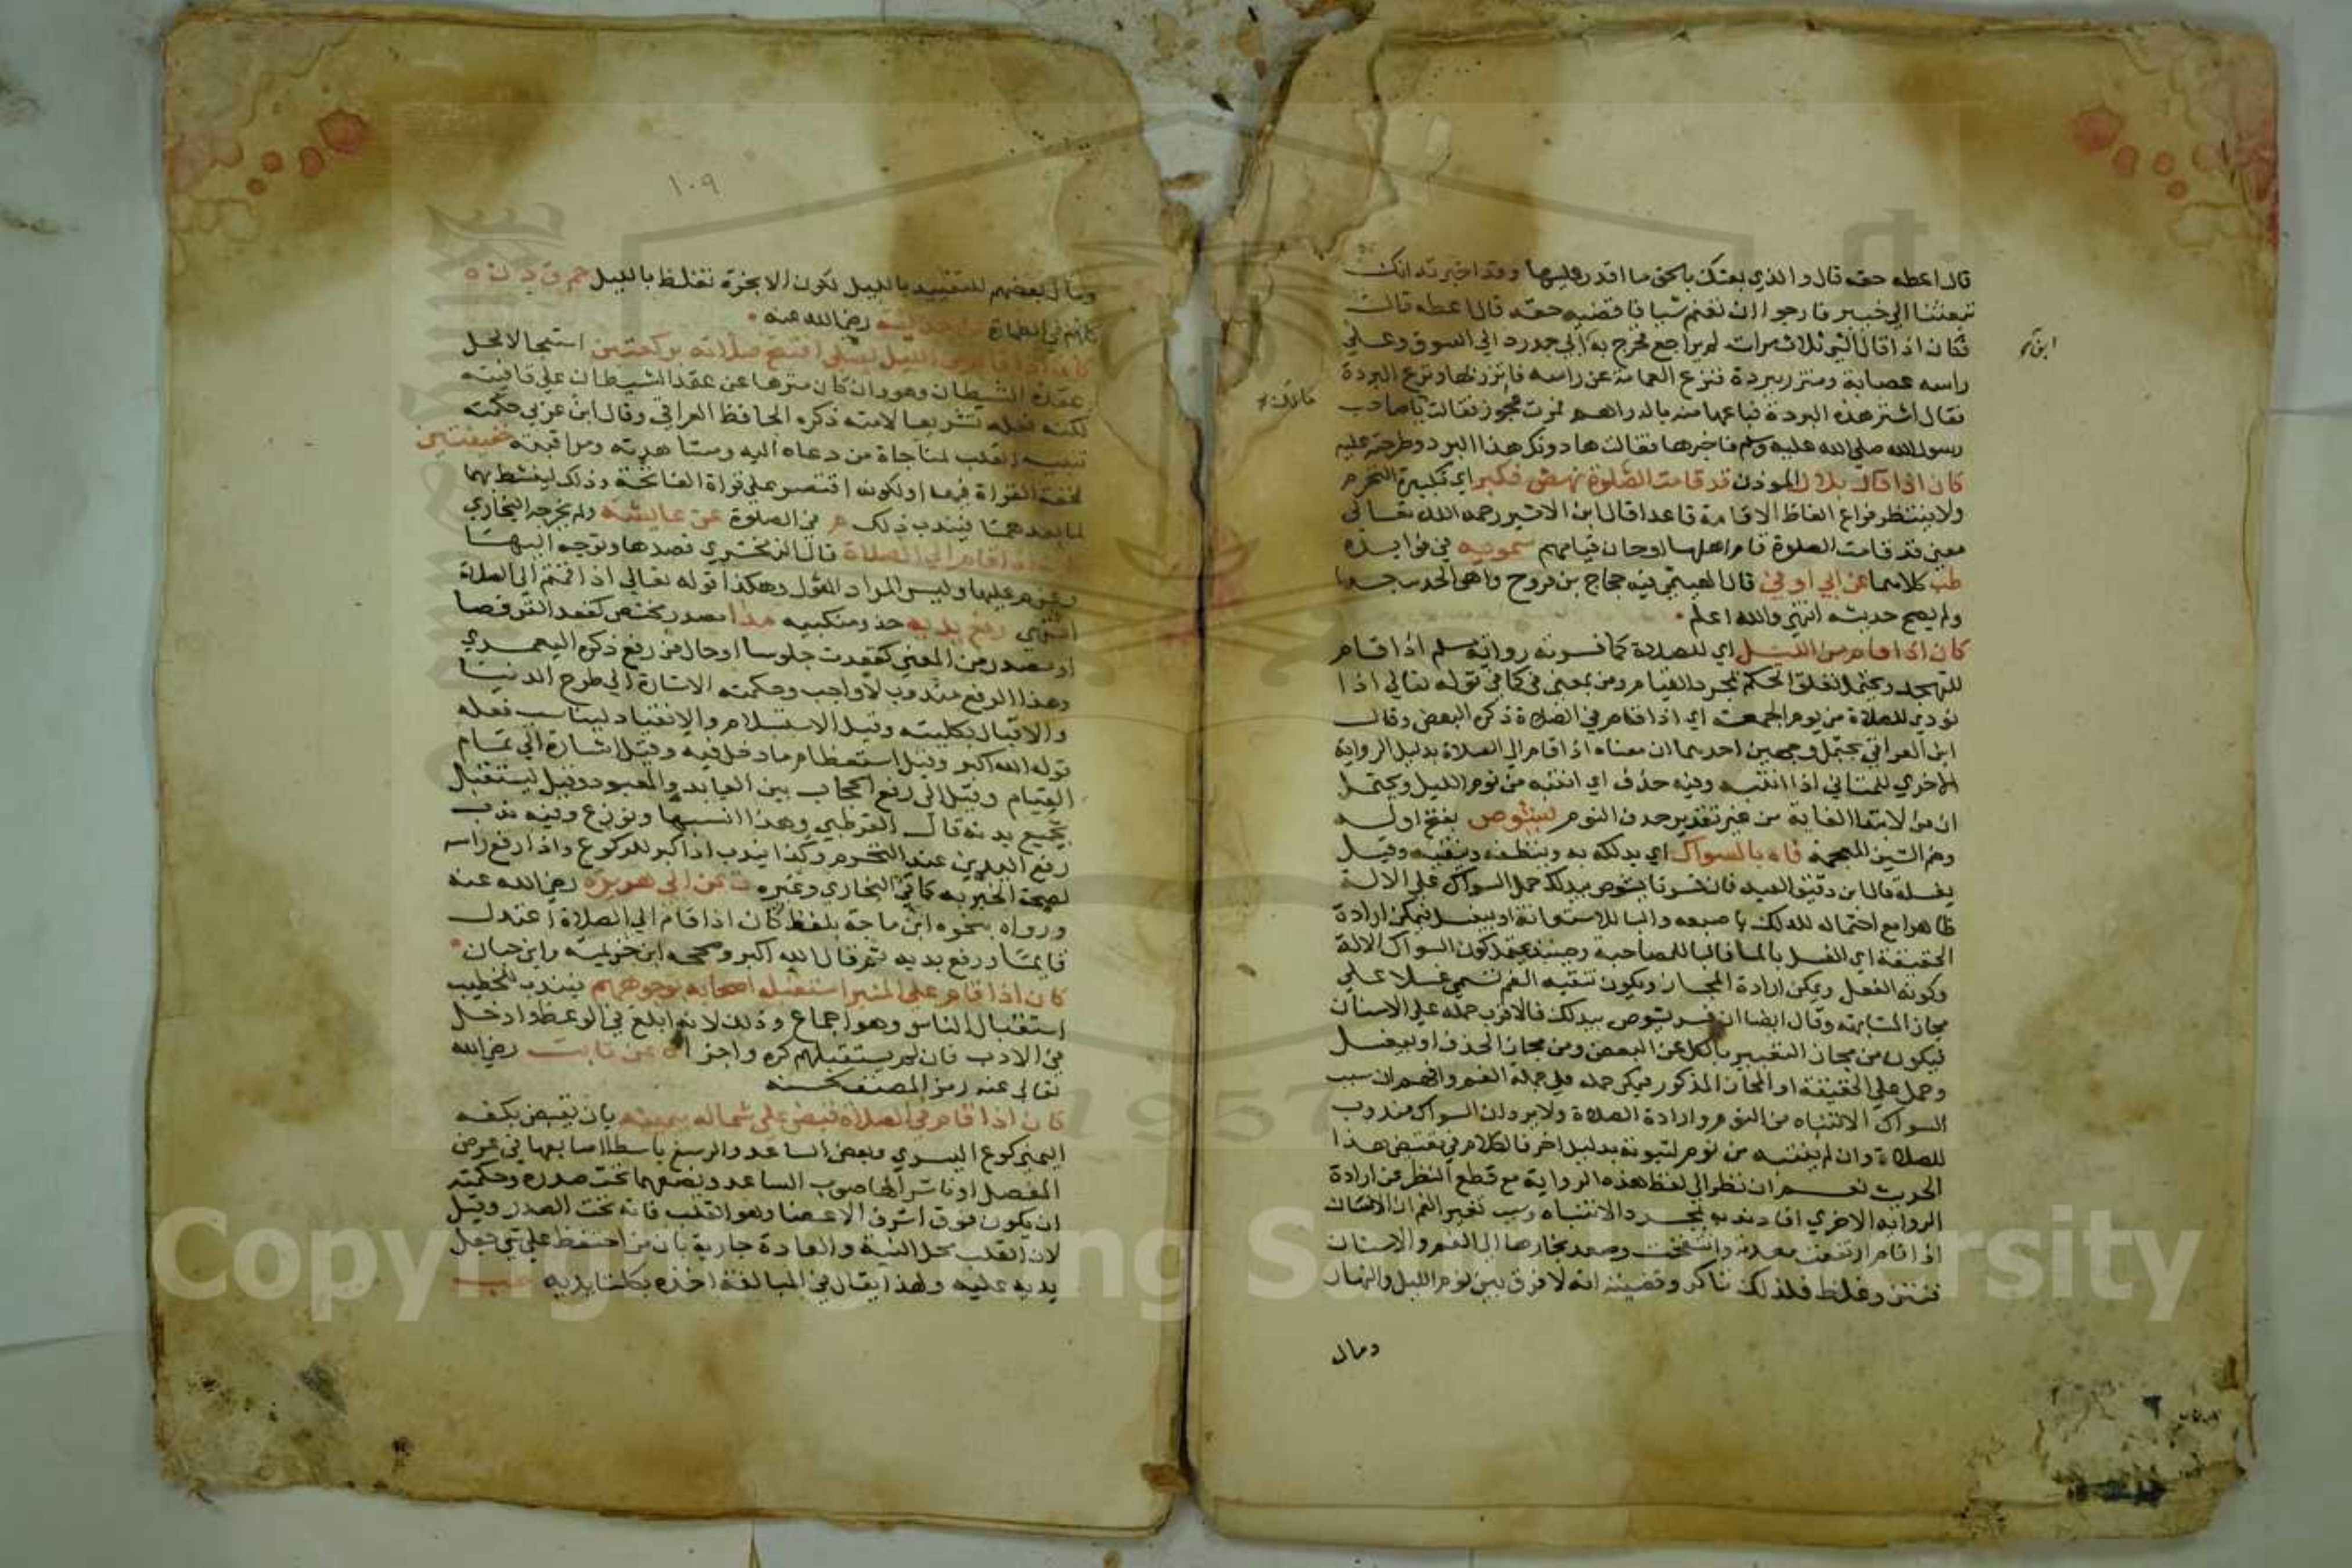 قال اعطه حقه قال والذي بعثك بالحق ما اقدر عليها وقد اخبرته انك
تبعثنا الى خيبر فارجوا ان نغنم شيا فاقضيه حقه قال اعطه قال
فكان اذا قال الشي ثلاث مرات لم يراجع فخرج به الى جدرد الى السوق وعلى
راسه عصابة ومتزر ببردة فنزع العمامة عن راسه فاتزر بها ونزع البردة
فقال اشتر هذه البردة فباعها منه بالدراهم فمرت عجوز فقالت يا صاحب
رسول الله صلى الله عليه وسلم فاخبرها فقالت ها دونك هذا البرد وطرحته عليه
كان اذا قال بلال الموذن قد قامت الصلوة نهض فكبر اي تكبيرة التحرم
ولا ينتظر فراغ الفاظ الاقامة قاعدا قال ابن الاثير رحمه الله تعالى
معنى قد قامت الصلوة قام اهلها او حان قيامهم سمويه في فوايده
طب كلاهما عن ابي اوفى قال الهيثمي فيه حجاج بن فروح وهو ضعيف جدا
ولم يصح حديثه انتهى والله اعلم
كان اذا قام من الليل اي للصلاة كما فسرته رواية مسلم اذا قام
للتهجد ويحتمل تعلق الحكم بمجرد القيام ومن بمعنى في كما في قوله تعالى اذا
نودي للصلاة من يوم الجمعة اي اذا قام في الصلاة ذكره البعض وقال
ابن العراقي يحتمل وجهين احدهما ان معناه اذا قام الى الصلاة بدليل الرواية
الاخرى الثاني اذا انتبه وفيه حذف اي انتبه من نوم الليل ويحتمل
ان من لابتدا الغاية من غير تقدير حذف النوم يشوص بفتح اوله
وضم الشين المعجمة فاه بالسواك اي يدلكه به وينظفه وينقيه وقيل
يغسله قال ابن دقيق العيد فان فسرنا يشوص بيدلك حمل السواك على الالة
ظاهرا مع احتماله للدلك باصبعه والبا للاستعانة او بيغسل فيمكن ارادة
الحقيقة اي الغسل بالما فالبا للمصاحبة وحينئذ يحتمل كون السواك الالة
وكونه الفعل ويمكن ارادة المجاز وتكون تنقية الفم تسمى غسلا على
مجاز المشابهة وقال ايضا ان فسر يشوص بيدلك فالاقرب حمله على الاسنان
فيكون من مجاز التعبير بالكل عن البعض ومن مجاز الحذف او بيغسل
وحمل على الحقيقة او المجاز المذكور فيمكن حمله على جملة الفم وافهم ان سبب
السواك الانتباه من النوم وارادة الصلاة ولا يرد ان السواك مندوب
للصلاة وان لم ينتبه من نوم لثبوته بدليل اخر فالكلام في مقتضى هذا
الحديث نعم ان نظر الى لفظ هذه الرواية مع قطع النظر عن ارادة
الرواية الاخرى افاد ندبه بمجرد الانتباه وسبب تغير الفم ان الانسان
اذا نام ارتفعت معدته وانتفخت وصعد بخارها الى الفم والاسنان
فنتن وغلظ فلذلك تاكد وقضيته انه لا فرق بين نوم الليل والنهار
وقال
١٠٩
وقال بعضهم للتقييد بالليل لكون الابخرة تغلظ بالليل حم ق د ن ه
كلهم في الطهارة عن حذيفة رضي الله عنه
كان اذا قام من الليل ليصلي افتتح صلاته بركعتين استعجالا لحل
عقدة الشيطان وهو وان كان منزها عن عقد الشيطان على قافيته
لكنه فعله تشريعا لامته ذكره الحافظ العراقي وقال ابن عربي حكمته
تنبيه القلب لمناجاة من دعاه اليه ومشاهدته ومراقبته خفيفتين
لخفة القراة فيهما او لكونه اقتصر على قراة الفاتحة وذلك لينشط بهما
لما بعدهما فيندب ذلك م في الصلوة عن عايشه ولم يخرجه البخاري
كان اذا قام الى الصلاة قال الزمخشري قصدها وتوجه اليها
وعزم عليها وليس المراد المثول وهكذا قوله تعالى اذا قمتم الى الصلاة
انتهى رفع يديه حذو منكبيه مدا مصدر مختص كقعد القرفصا
او مصدر من المعنى كقعدت جلوسا او حال من رفع ذكره اليعمري
وهذا الرفع مندوب لا واجب وحكمته الاشارة الى طرح الدنيا
والاقبال بكليته وقيل الاستسلام والانقياد ليناسب فعله
قوله الله اكبر وقيل استعظام ما دخل فيه وقيل اشارة الى تمام
القيام وقيل الى رفع الحجاب بين العابد والمعبود وقيل ليستقبل
بجميع بدنه قال القرطبي وهذا انسبها ونوزع وفيه ندب
رفع اليدين عند التحرم وكذا يندب اذا كبر للركوع واذا رفع راسه
لصحة الخبر به كما في البخاري وغيره ت عن ابي هريرة رضي الله عنه
ورواه بنحوه ابن ماجة بلفظ كان اذا قام الى الصلاة اعتدل
قايما ورفع يديه ثم قال الله اكبر وصححه ابن خزيمة وابن حبان
كان اذا قام على المنبر استقبله اصحابه بوجوههم فيندب للخطيب
استقبال الناس وهو اجماع وذلك لانه ابلغ في الوعظ وادخل
في الادب فان لم يستقبلهم كره واجزا ه عن ثابت رضي الله
تعالى عنه رمز المصنف لحسنه
كان اذا قام في الصلاة قبض على شماله بيمينه بان يقبض بكفه
اليمنى كوع اليسرى وبعض الساعد والرسغ باسطا اصابعها في عرض
المفصل او ناشرا لها صوب الساعد ويضعهما تحت صدره وحكمته
ان يكون فوق اشرف الاعضا وهو القلب فانه تحت الصدر وقيل
لان القلب محل النية والعادة جارية بان من احتفظ على شي جعل
يديه عليه ولهذا يقال في المبالغة اخذه بكلتا يديه طب
Copyright © King Saud University
1957